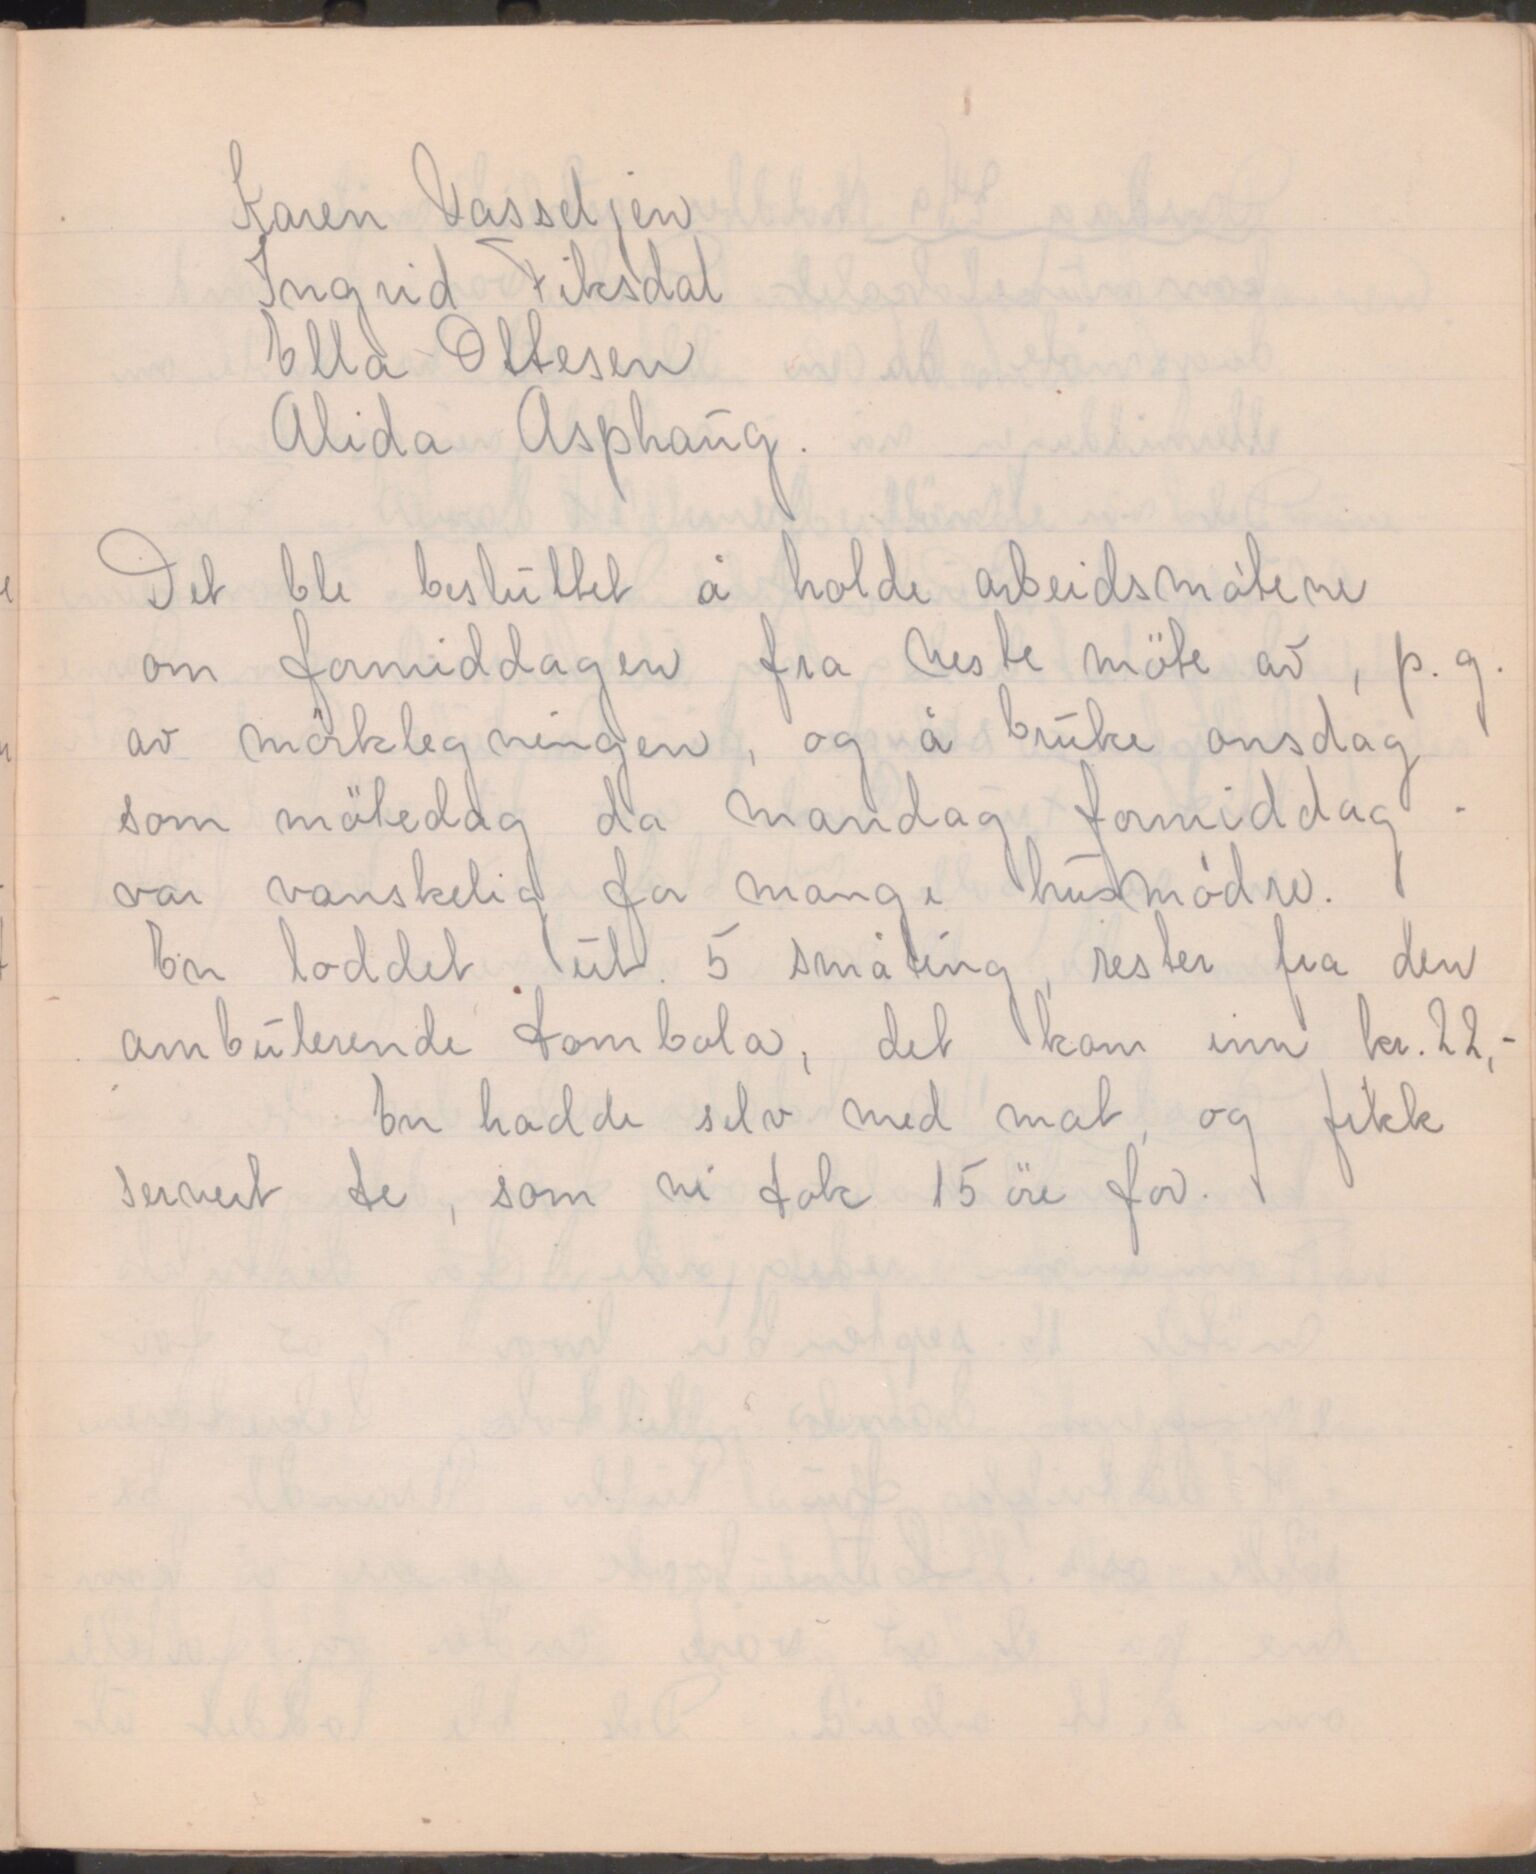 Karen Vasseljen
Ingrid Fiksdal
Ella Ottesen
Alida Asphaug.
Det ble besluttet å holde arbeidsmötene
om formiddagen fra neste möte av, p. g.
av mörklegningen, og å bruke onsdag
som mötedag da mandag formiddag
var vanskelig for mange husmödre.
En loddet ut 5 småting, rester fra den
ambulerende tombola, det kom inn kr. 22,-
En hadde selv med mat, og fikk
servert te, som vi tok 15 öre for.